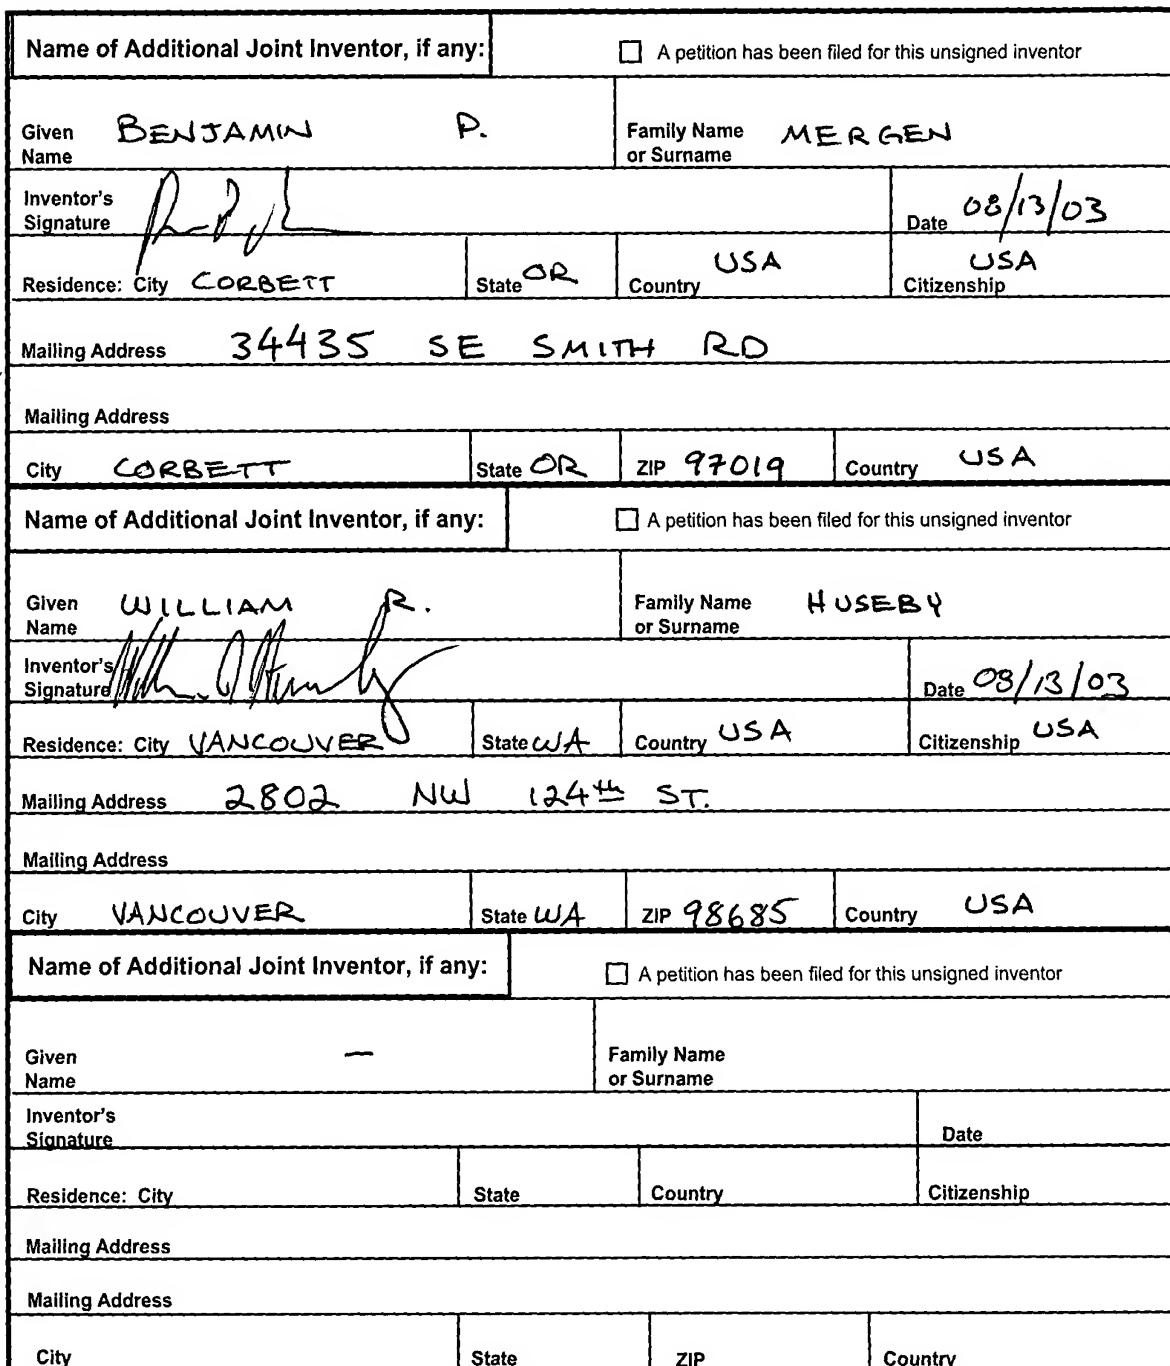 Name of Additional Joint Inventor, if any: ☐ A petition has been filed for this unsigned inventor
Given Name BENJAMIN P. Family Name or Surname MERGEN
Inventor's Signature Date 08/13/03
Residence: City CORBETT State OR Country USA Citizenship USA
Mailing Address 34435 SE SMITH RD
Mailing Address
City CORBETT State OR ZIP 97019 Country USA
Name of Additional Joint Inventor, if any: ☐ A petition has been filed for this unsigned inventor
Given Name WILLIAM R. Family Name or Surname HUSEBY
Inventor's Signature Date 08/13/03
Residence: City VANCOUVER State WA Country USA Citizenship USA
Mailing Address 2802 NW 124th ST.
Mailing Address
City VANCOUVER State WA ZIP 98685 Country USA
Name of Additional Joint Inventor, if any: ☐ A petition has been filed for this unsigned inventor
Given Name — Family Name or Surname
Inventor's Signature Date
Residence: City State Country Citizenship
Mailing Address
Mailing Address
City State ZIP Country